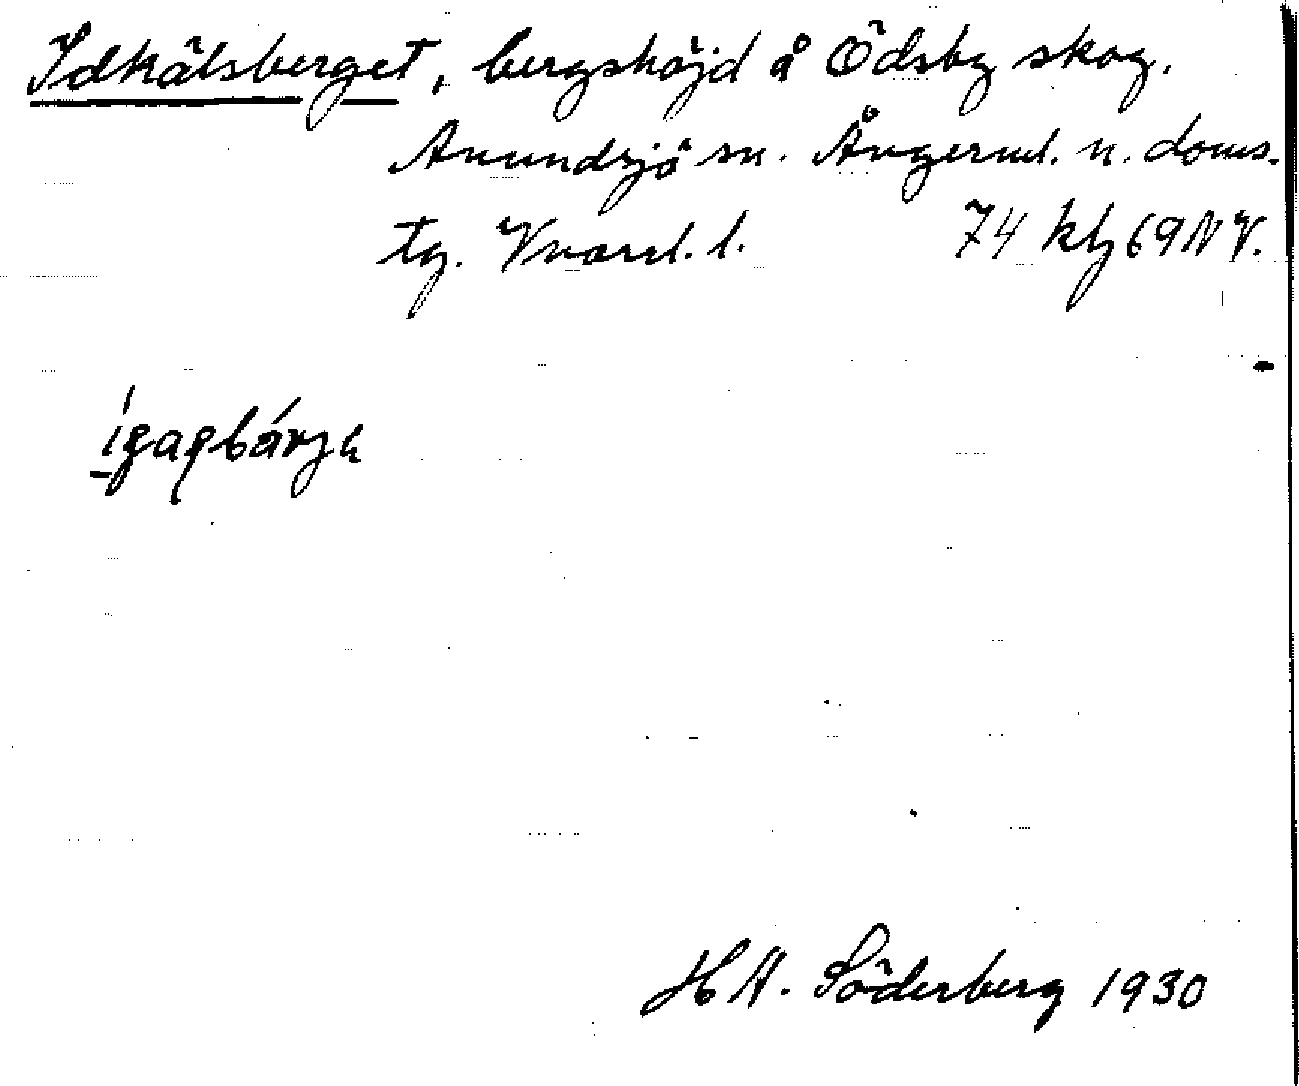 Idkålsberget, bergshöjd å Ödsby skog.
Anundsjö sn. Ångerml. n. doms.
tg. Vnorrl. l. 74 kbj 69 NV.
H A. Söderberg 1930